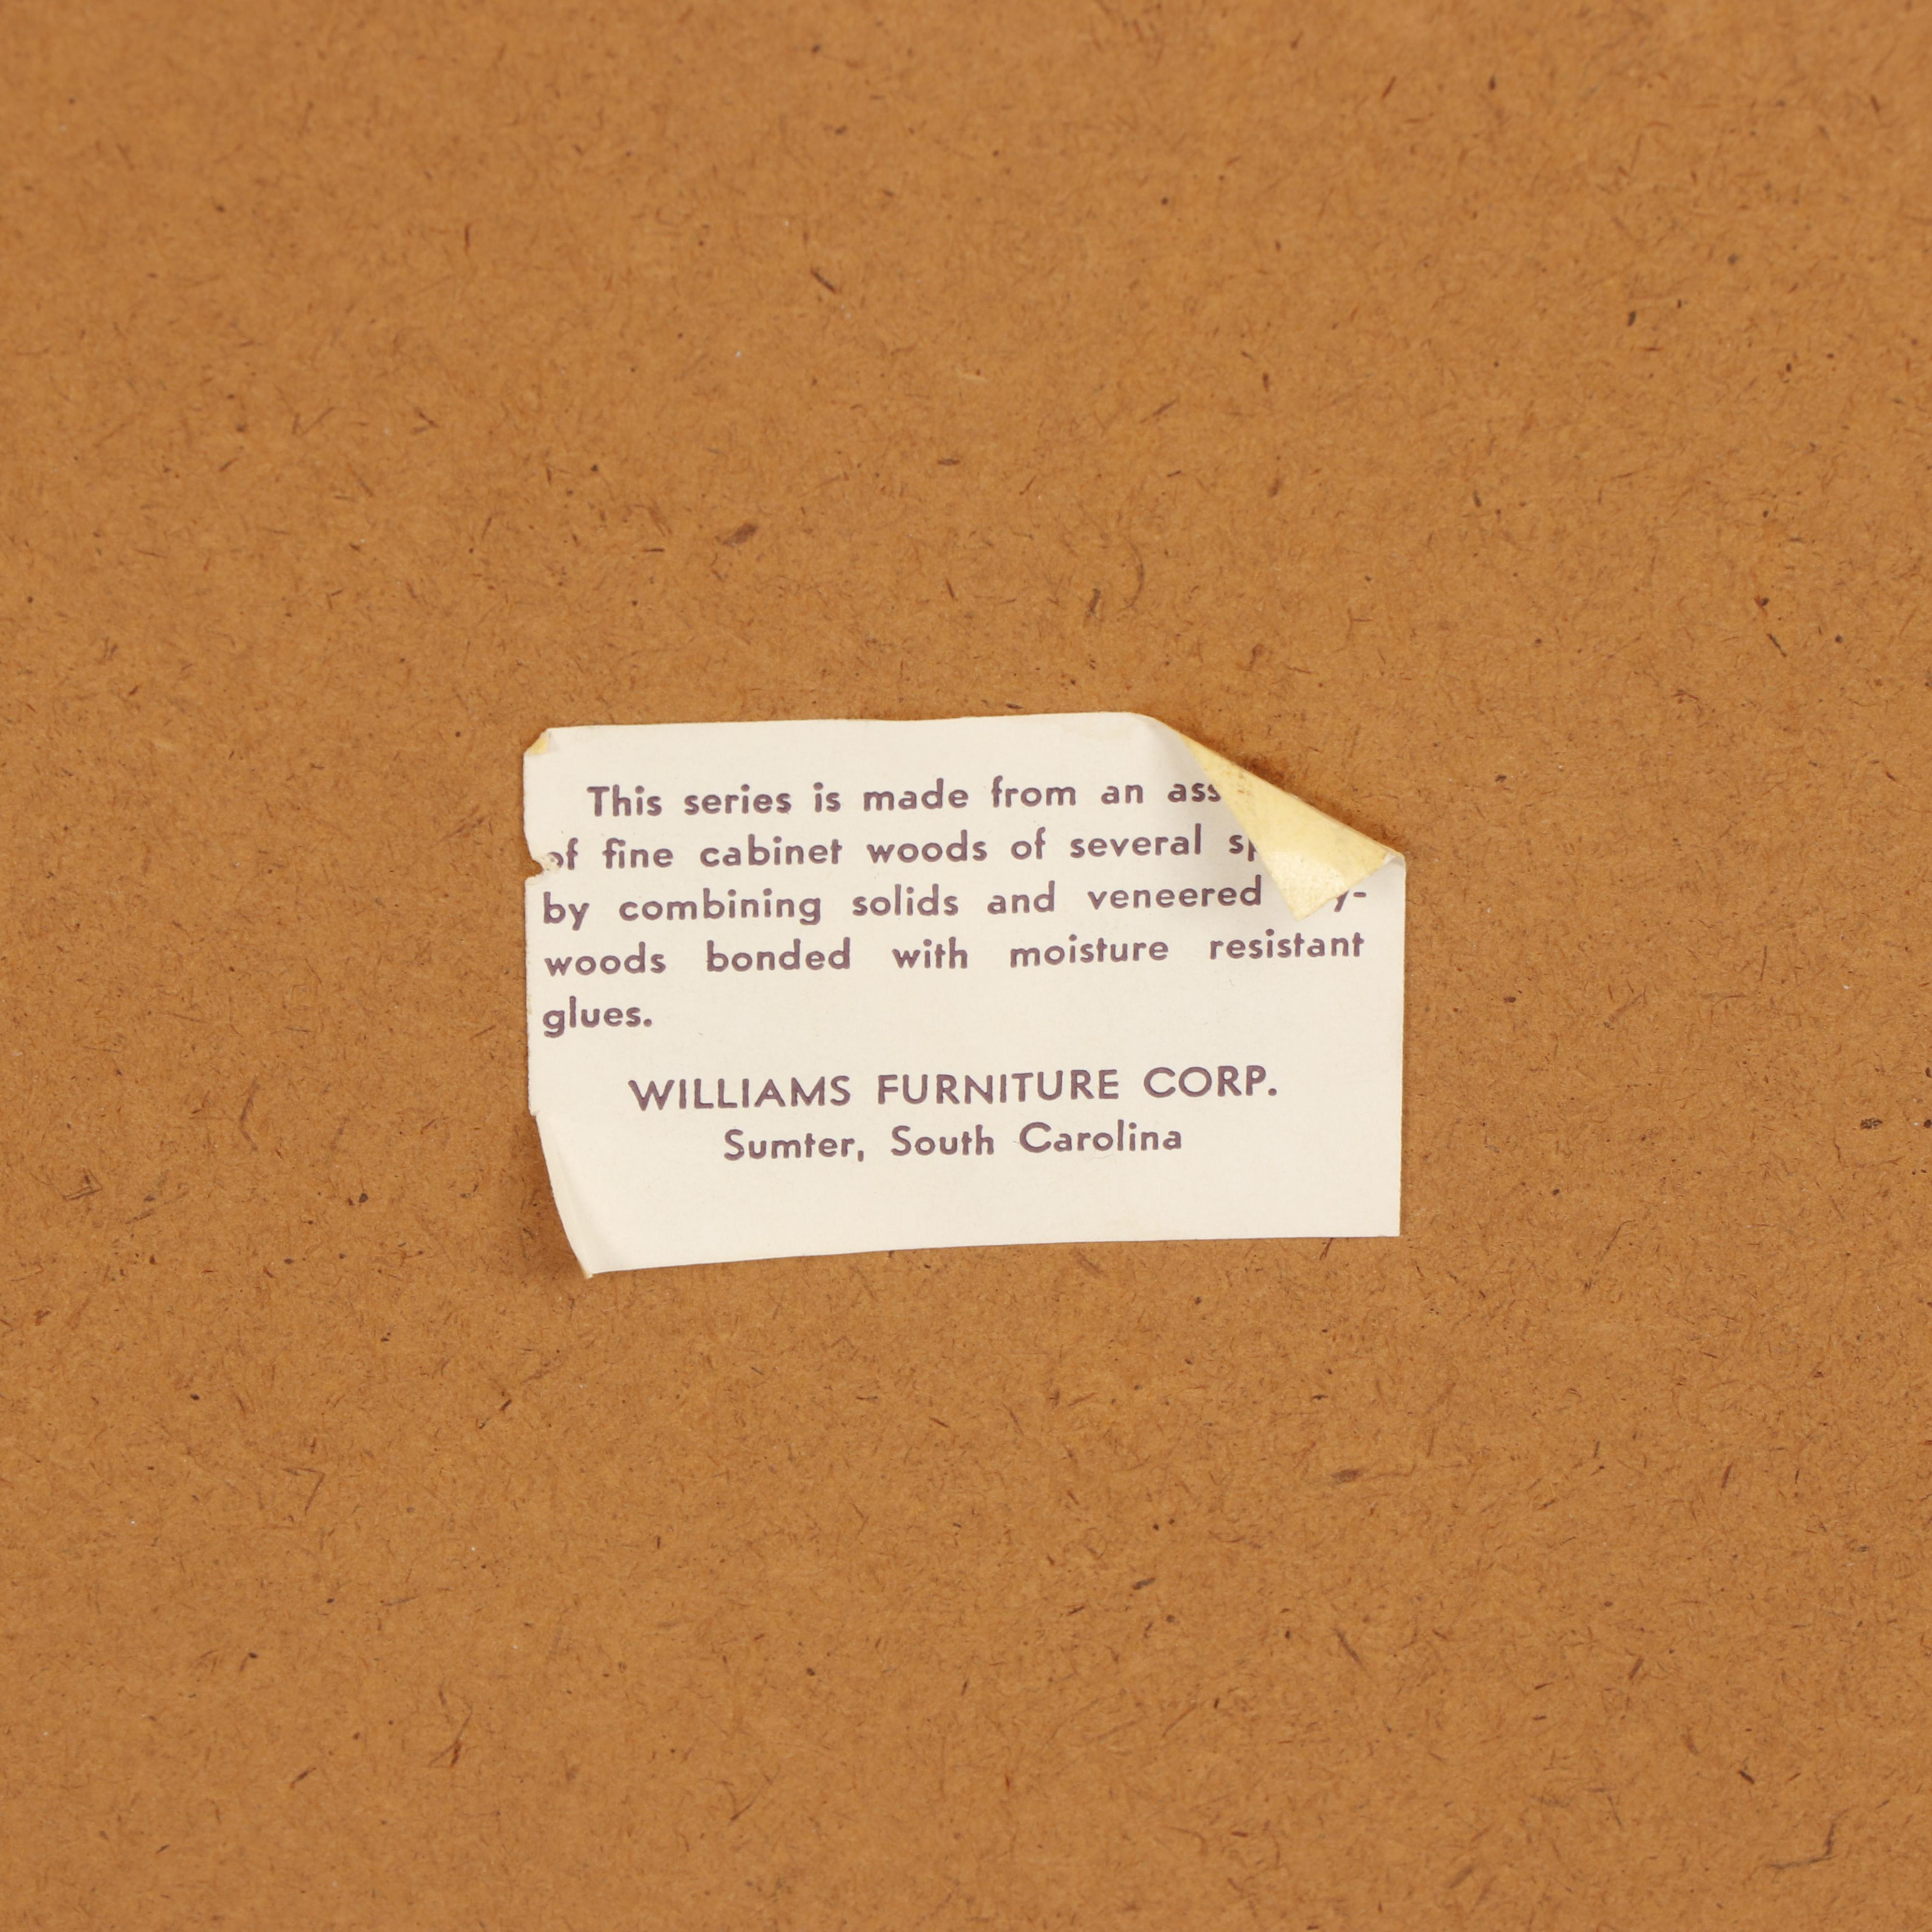 This series is made from an
of fine cabinet woods of several
by combining solids and veneered
woods bonded with moisture resistant
glues.
WILLIAMS FURNITURE CORP.
Sumter, South Carolina